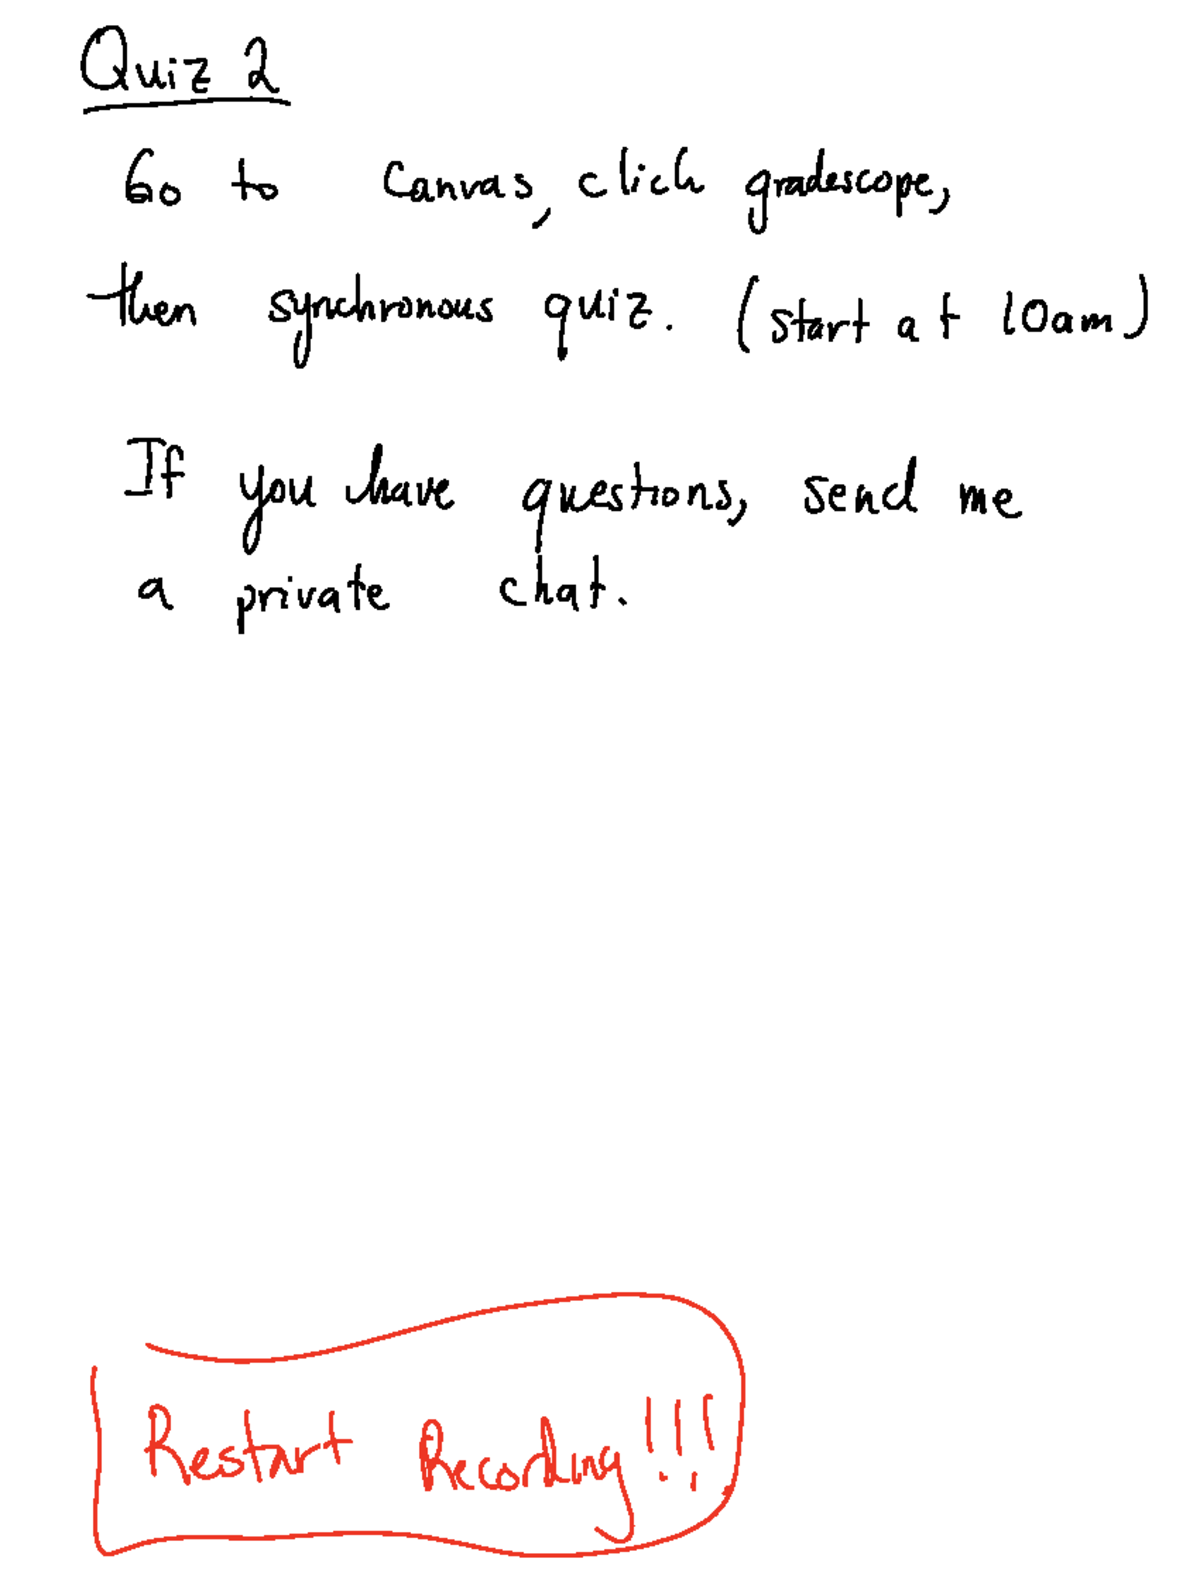 Quiz 2
Go to Canvas, click gradescope,
then synchronous quiz. (start at 10am)
If you have questions, send me
a private chat.
Restart Recording!!!